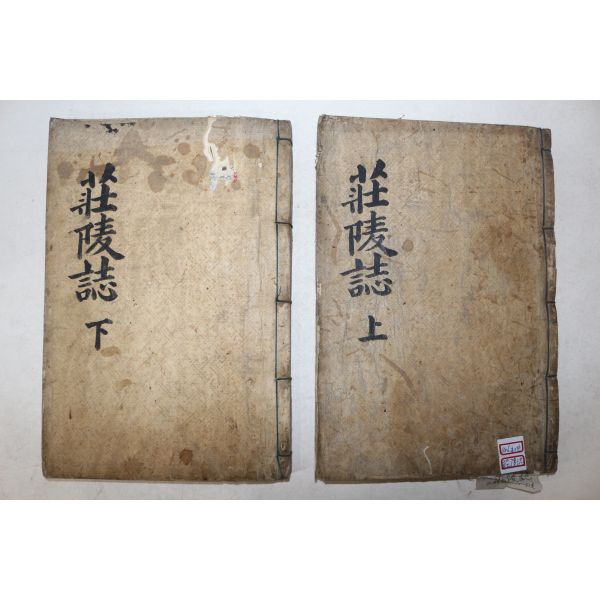 莊陵誌 上
莊陵誌 下